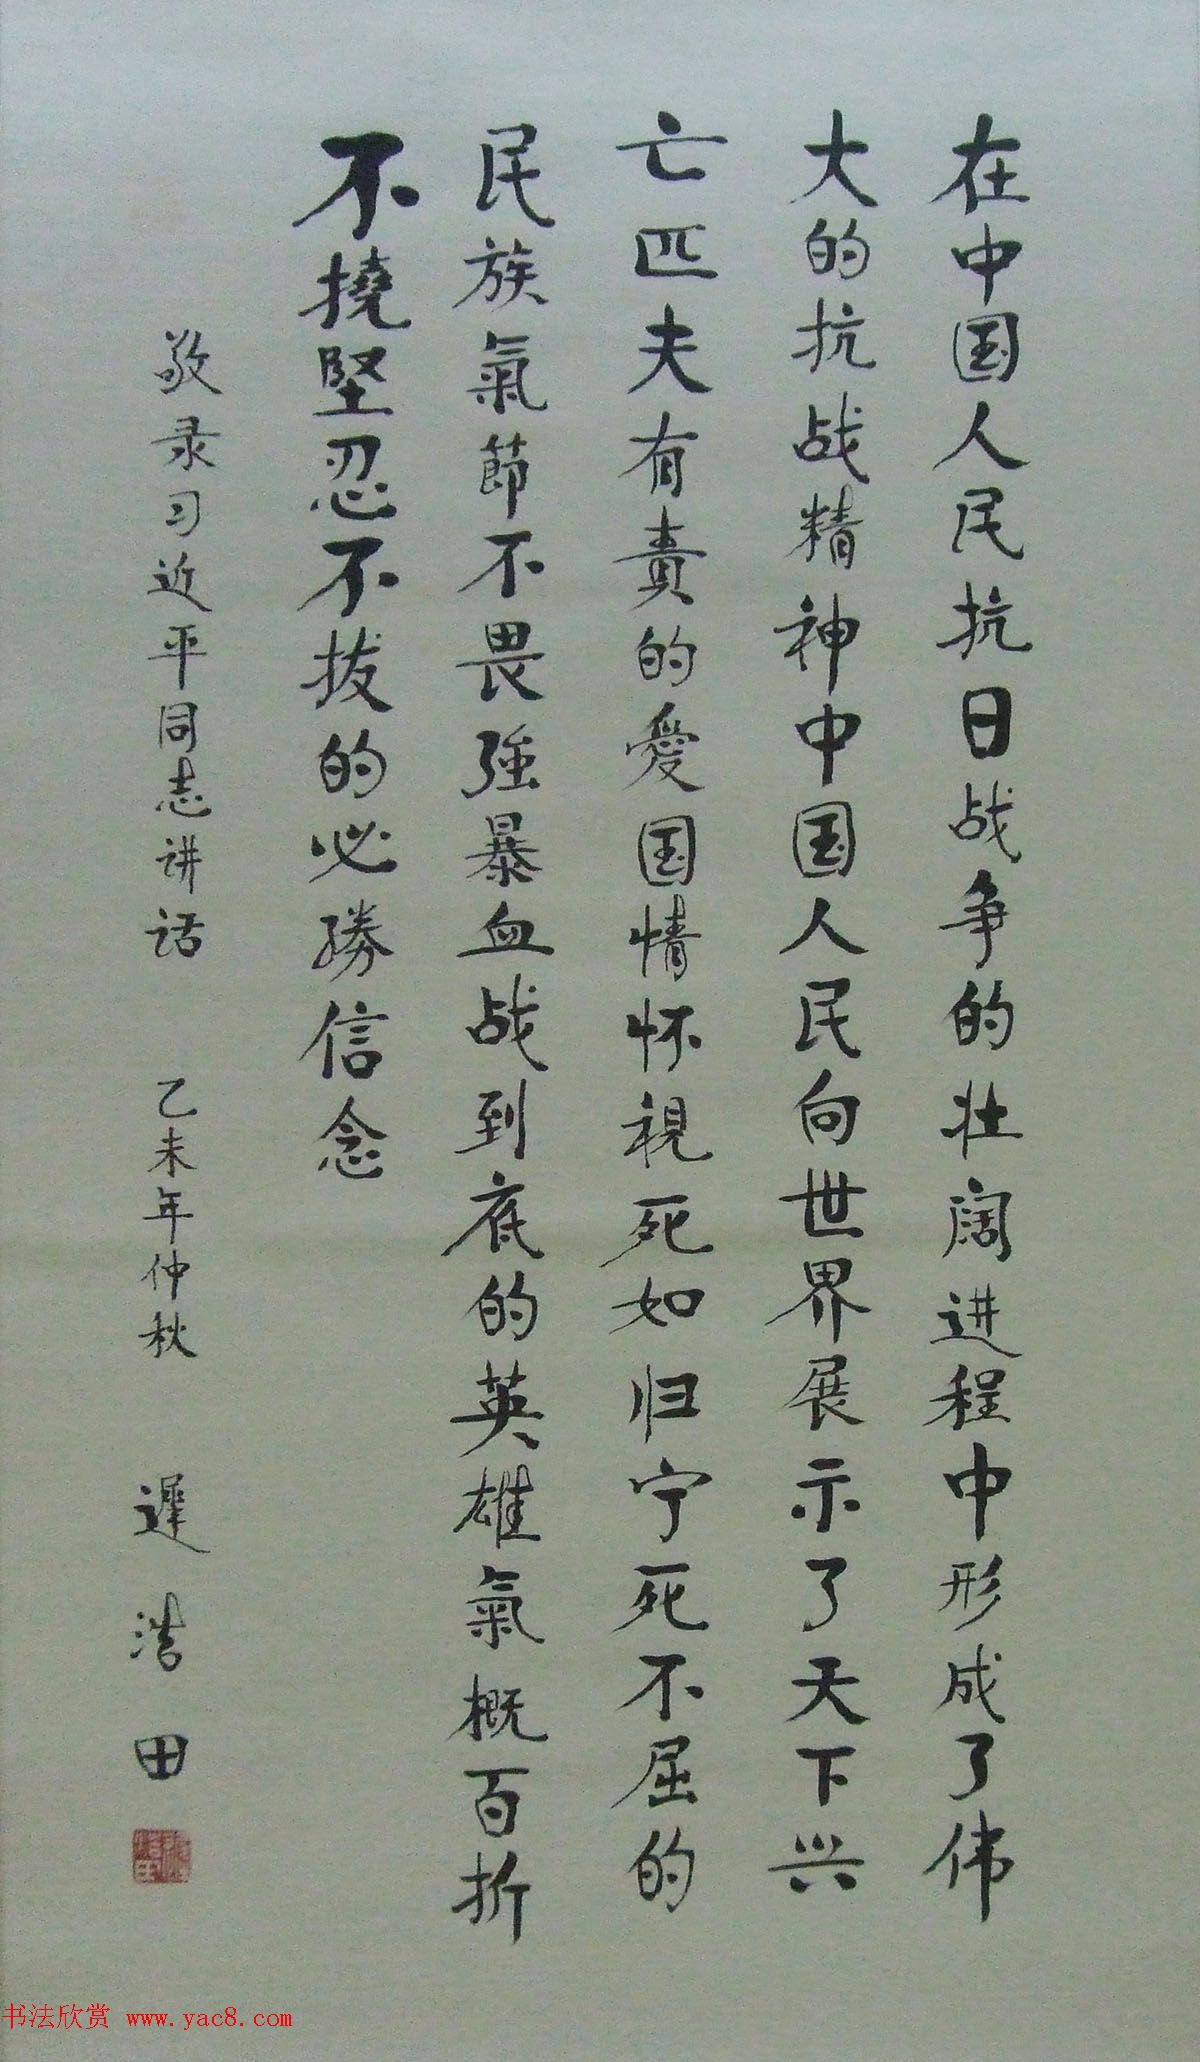 在中国人民抗日战争的壮阔进程中形成了伟
大的抗战精神中国人民向世界展示了天下兴
亡匹夫有責的愛国情怀視死如归宁死不屈的
民族氣節不畏強暴血战到底的英雄氣概百折
不撓堅忍不拔的必勝信念
敬录习近平同志讲话 乙未年仲秋 遲浩田
书法欣赏 www.yac8.com